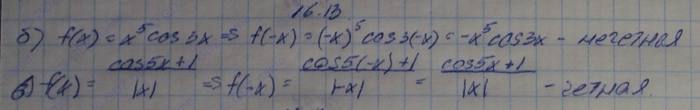 16.13
б) f(x) = x⁵cos3x => f(-x) = (-x)⁵cos3(-x) = -x⁵cos3x - нечетная
в) f(x) = (cos5x+1)/|x| => f(-x) = (cos5(-x)+1)/|-x| = (cos5x+1)/|x| - четная.